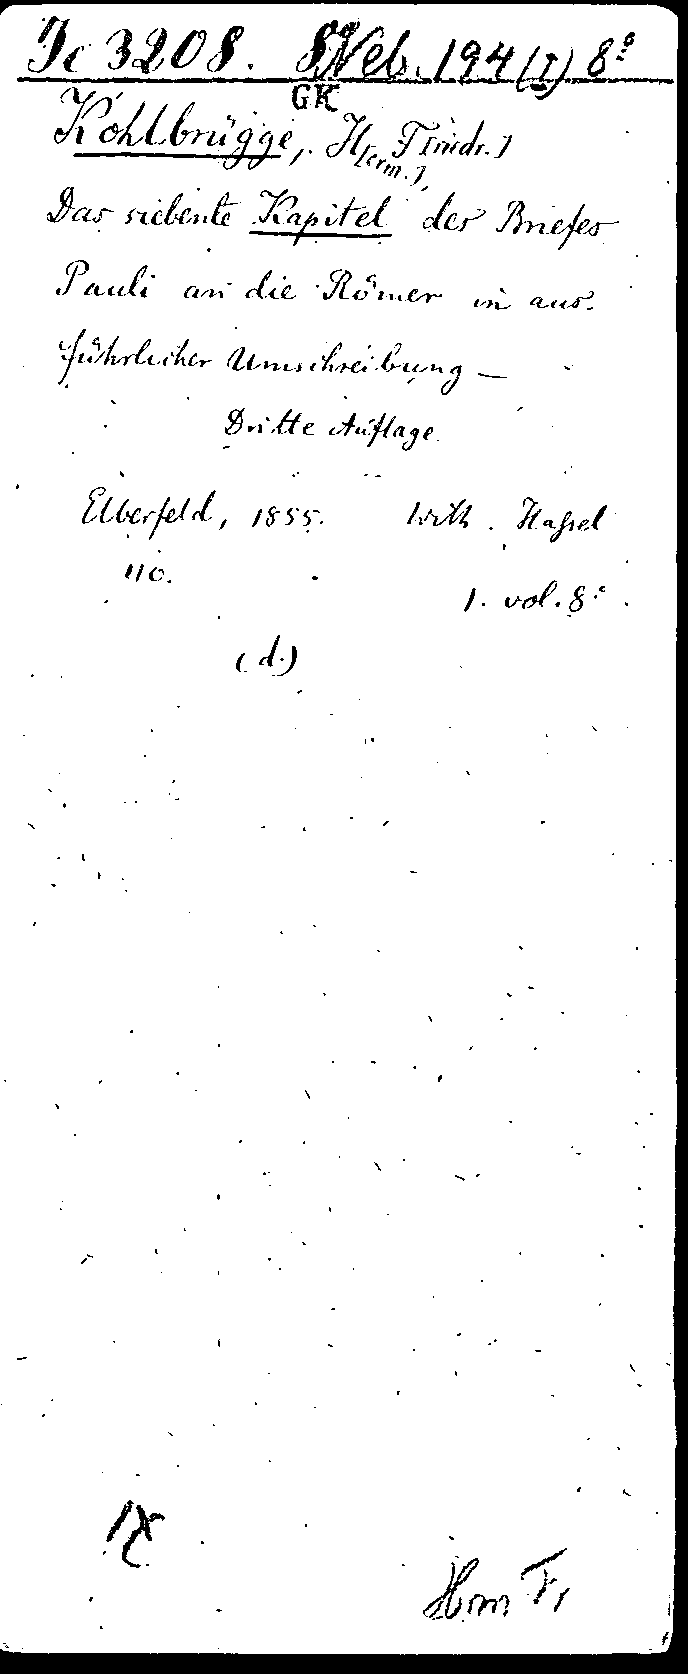 Jc 3208. 8 Neb. 194 (I) 8º
GK
Kohlbrügge, H[erm.], F[riedr.]
Das siebente Kapitel des Briefes
Pauli an die Römer in aus-
führlicher Umschreibung —
Dritte Auflage
Elberfeld, 1855. Wilh. Haßel
110.
1. vol. 8º
(d.)
Hm Fr